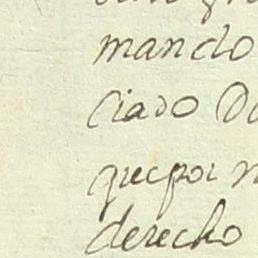 mando
ciado D
que por n
derecho